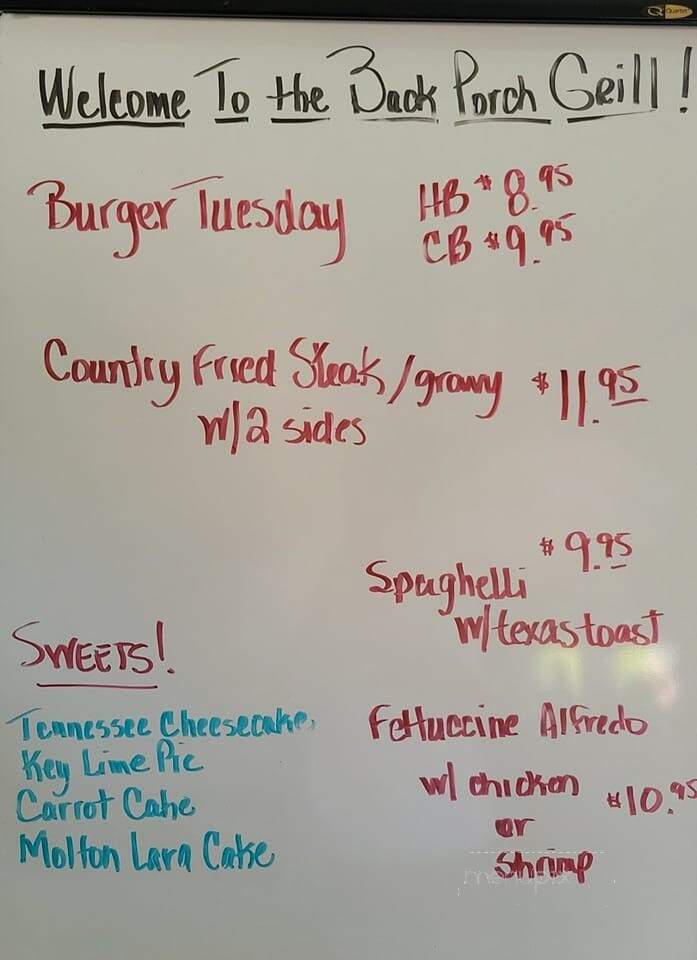 Quartet
Welcome To the Back Porch Grill!
Burger Tuesday
HB $8.95
CB $9.95
Country Fried Steak/gravy $11.95
w/2 sides
$9.95
Spaghetti
w/texas toast
SWEETS!
Tennessee Cheesecake,
Key Lime Pie
Carrot Cake
Molton Lava Cake
Fettuccine Alfredo
w/ chicken $10.95
or
shrimp
menupix